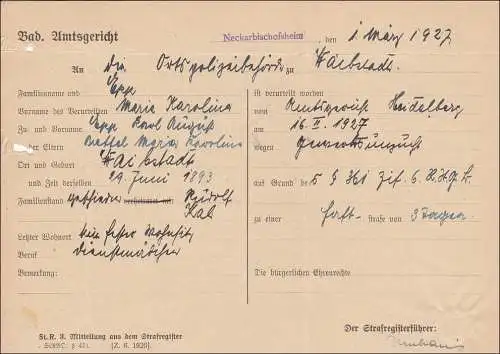 Bad. Amtsgericht Neckarbischofsheim , den 1 März 1927
An die Ortspolizeibehörde zu Waibstadt.
Familienname und Epp
Vorname des Verurteilten Maria Karolina
Zu- und Vorname Epp Karl August
der Eltern Maria Karolina
Ort und Geburt Waibstadt
und Zeit derselben 29. Juni 1893
Familienstand geschieden verheiratet mit Rudolf
Letzter Wohnort kein fester Wohnsitz
Beruf Dienstmädchen
Bemerkung:
St.R. 3. Mitteilung aus dem Strafregister
[Z. 6. 1926].
ist verurteilt worden
vom Amtsgericht Heidelberg
am 16. II. 1927
wegen Gewerbsunzucht
auf Grund des § 361 Zif. 6 R.St.G.B.
zu einer Haft - strafe von 3 Tagen
Die bürgerlichen Ehrenrechte
Der Strafregisterführer: